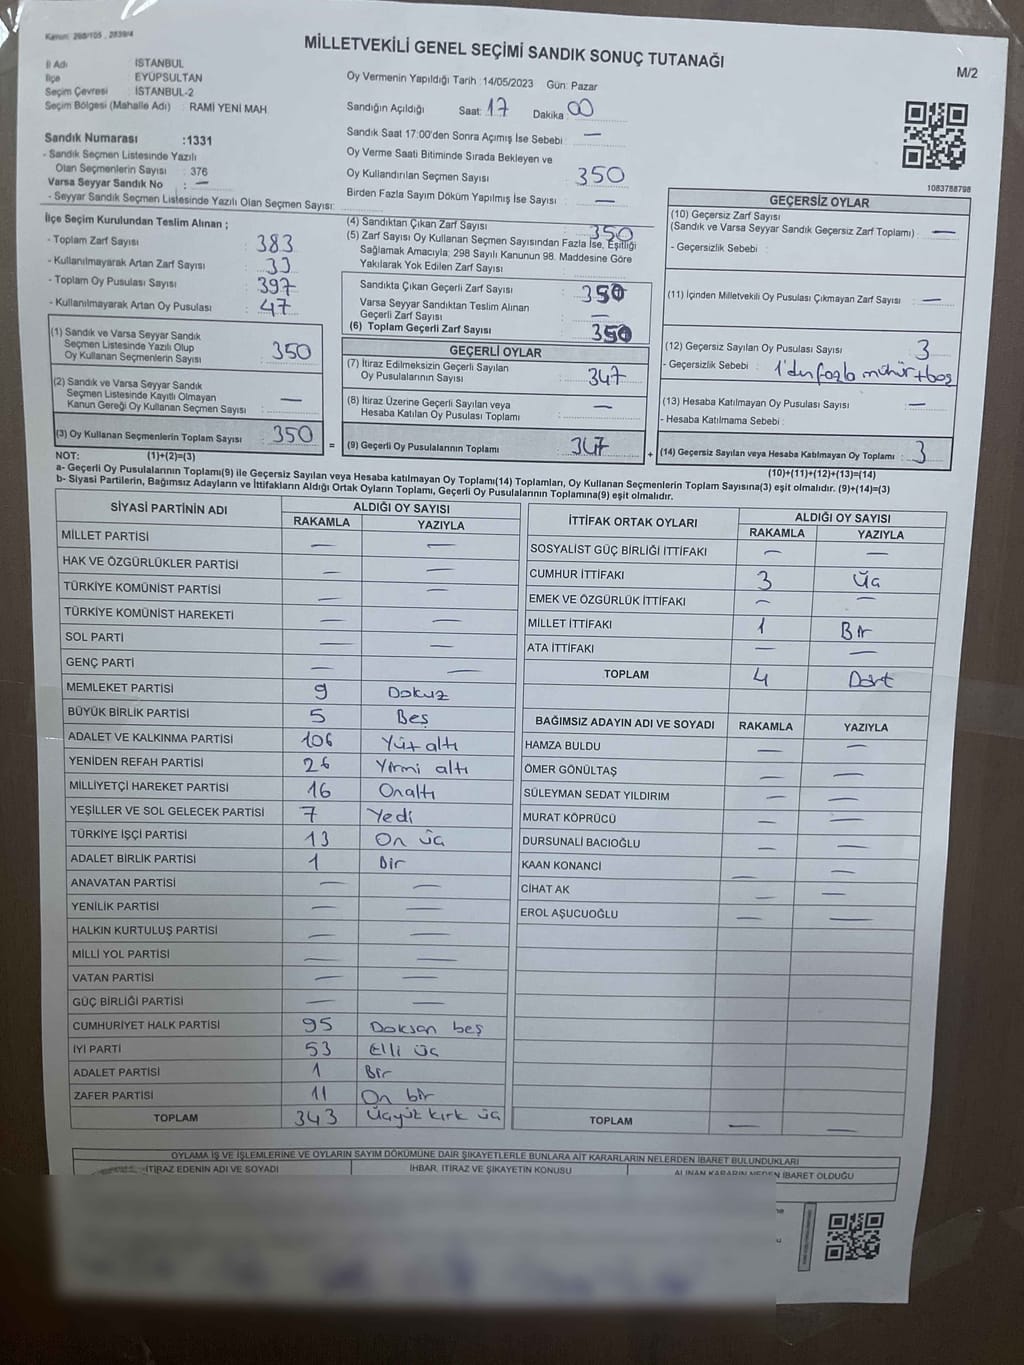 Kanun: 298/105 , 2839/4
MİLLETVEKİLİ GENEL SEÇİMİ SANDIK SONUÇ TUTANAĞI
M/2
İl Adı : İSTANBUL
İlçe : EYÜPSULTAN
Seçim Çevresi : İSTANBUL-2
Seçim Bölgesi (Mahalle Adı) : RAMİ YENİ MAH.
Oy Vermenin Yapıldığı Tarih : 14/05/2023 Gün: Pazar
Sandığın Açıldığı Saat: 17 Dakika 00
Sandık Saat 17:00'den Sonra Açılmış İse Sebebi : —
Oy Verme Saati Bitiminde Sırada Bekleyen ve
Oy Kullandırılan Seçmen Sayısı : 350
Birden Fazla Sayım Döküm Yapılmış İse Sayısı : —
Sandık Numarası :1331
- Sandık Seçmen Listesinde Yazılı
Olan Seçmenlerin Sayısı : 376
Varsa Seyyar Sandık No : —
- Seyyar Sandık Seçmen Listesinde Yazılı Olan Seçmen Sayısı:
1083788798
İlçe Seçim Kurulundan Teslim Alınan ;
- Toplam Zarf Sayısı : 383
- Kullanılmayarak Artan Zarf Sayısı : 33
- Toplam Oy Pusulası Sayısı : 397
- Kullanılmayarak Artan Oy Pusulası : 47
(1) Sandık ve Varsa Seyyar Sandık
Seçmen Listesinde Yazılı Olup
Oy Kullanan Seçmenlerin Sayısı : 350
(2) Sandık ve Varsa Seyyar Sandık
Seçmen Listesinde Kayıtlı Olmayan
Kanun Gereği Oy Kullanan Seçmen Sayısı : —
(3) Oy Kullanan Seçmenlerin Toplam Sayısı : 350
(4) Sandıktan Çıkan Zarf Sayısı : 350
(5) Zarf Sayısı Oy Kullanan Seçmen Sayısından Fazla İse, Eşitliği
Sağlamak Amacıyla; 298 Sayılı Kanunun 98. Maddesine Göre
Yakılarak Yok Edilen Zarf Sayısı :
Sandıkta Çıkan Geçerli Zarf Sayısı : 350
Varsa Seyyar Sandıktan Teslim Alınan
Geçerli Zarf Sayısı : —
(6) Toplam Geçerli Zarf Sayısı : 350
GEÇERLİ OYLAR
(7) İtiraz Edilmeksizin Geçerli Sayılan
Oy Pusulalarının Sayısı : 347
(8) İtiraz Üzerine Geçerli Sayılan veya
Hesaba Katılan Oy Pusulası Toplamı : —
= (9) Geçerli Oy Pusulalarının Toplamı : 347
GEÇERSİZ OYLAR
(10) Geçersiz Zarf Sayısı
(Sandık ve Varsa Seyyar Sandık Geçersiz Zarf Toplamı) : —
- Geçersizlik Sebebi :
(11) İçinden Milletvekili Oy Pusulası Çıkmayan Zarf Sayısı : —
(12) Geçersiz Sayılan Oy Pusulası Sayısı : 3
- Geçersizlik Sebebi : 1'den fazla mühür+boş
(13) Hesaba Katılmayan Oy Pusulası Sayısı : —
- Hesaba Katılmama Sebebi :
+ (14) Geçersiz Sayılan veya Hesaba Katılmayan Oy Toplamı : 3
NOT: (1)+(2)=(3)
(10)+(11)+(12)+(13)=(14)
a- Geçerli Oy Pusulalarının Toplamı(9) ile Geçersiz Sayılan veya Hesaba katılmayan Oy Toplamı(14) Toplamları, Oy Kullanan Seçmenlerin Toplam Sayısına(3) eşit olmalıdır. (9)+(14)=(3)
b- Siyasi Partilerin, Bağımsız Adayların ve İttifakların Aldığı Ortak Oyların Toplamı, Geçerli Oy Pusulalarının Toplamına(9) eşit olmalıdır.
SİYASİ PARTİNİN ADI ALDIĞI OY SAYISI
RAKAMLA YAZIYLA
MİLLET PARTİSİ — —
HAK VE ÖZGÜRLÜKLER PARTİSİ — —
TÜRKİYE KOMÜNİST PARTİSİ — —
TÜRKİYE KOMÜNİST HAREKETİ — —
SOL PARTİ — —
GENÇ PARTİ — —
MEMLEKET PARTİSİ 9 Dokuz
BÜYÜK BİRLİK PARTİSİ 5 Beş
ADALET VE KALKINMA PARTİSİ 106 Yüz altı
YENİDEN REFAH PARTİSİ 26 Yirmi altı
MİLLİYETÇİ HAREKET PARTİSİ 16 Onaltı
YEŞİLLER VE SOL GELECEK PARTİSİ 7 Yedi
TÜRKİYE İŞÇİ PARTİSİ 13 On üç
ADALET BİRLİK PARTİSİ 1 Bir
ANAVATAN PARTİSİ — —
YENİLİK PARTİSİ — —
HALKIN KURTULUŞ PARTİSİ — —
MİLLİ YOL PARTİSİ — —
VATAN PARTİSİ — —
GÜÇ BİRLİĞİ PARTİSİ — —
CUMHURİYET HALK PARTİSİ 95 Doksan beş
İYİ PARTİ 53 Elli üç
ADALET PARTİSİ 1 Bir
ZAFER PARTİSİ 11 On bir
TOPLAM 343 Üçyüz kırk üç
İTTİFAK ORTAK OYLARI ALDIĞI OY SAYISI
RAKAMLA YAZIYLA
SOSYALİST GÜÇ BİRLİĞİ İTTİFAKI — —
CUMHUR İTTİFAKI 3 Üç
EMEK VE ÖZGÜRLÜK İTTİFAKI — —
MİLLET İTTİFAKI 1 Bir
ATA İTTİFAKI — —
TOPLAM 4 Dört
BAĞIMSIZ ADAYIN ADI VE SOYADI RAKAMLA YAZIYLA
HAMZA BULDU — —
ÖMER GÖNÜLTAŞ — —
SÜLEYMAN SEDAT YILDIRIM — —
MURAT KÖPRÜCÜ — —
DURSUNALİ BACIOĞLU — —
KAAN KONANCİ — —
CİHAT AK — —
EROL AŞUCUOĞLU — —
TOPLAM — —
OYLAMA İŞ VE İŞLEMLERİNE VE OYLARIN SAYIM DÖKÜMÜNE DAİR ŞİKAYETLERLE BUNLARA AİT KARARLARIN NELERDEN İBARET BULUNDUKLARI
İTİRAZ EDENİN ADI VE SOYADI İHBAR, İTİRAZ VE ŞİKAYETİN KONUSU ALINAN KARARIN NEDEN İBARET OLDUĞU